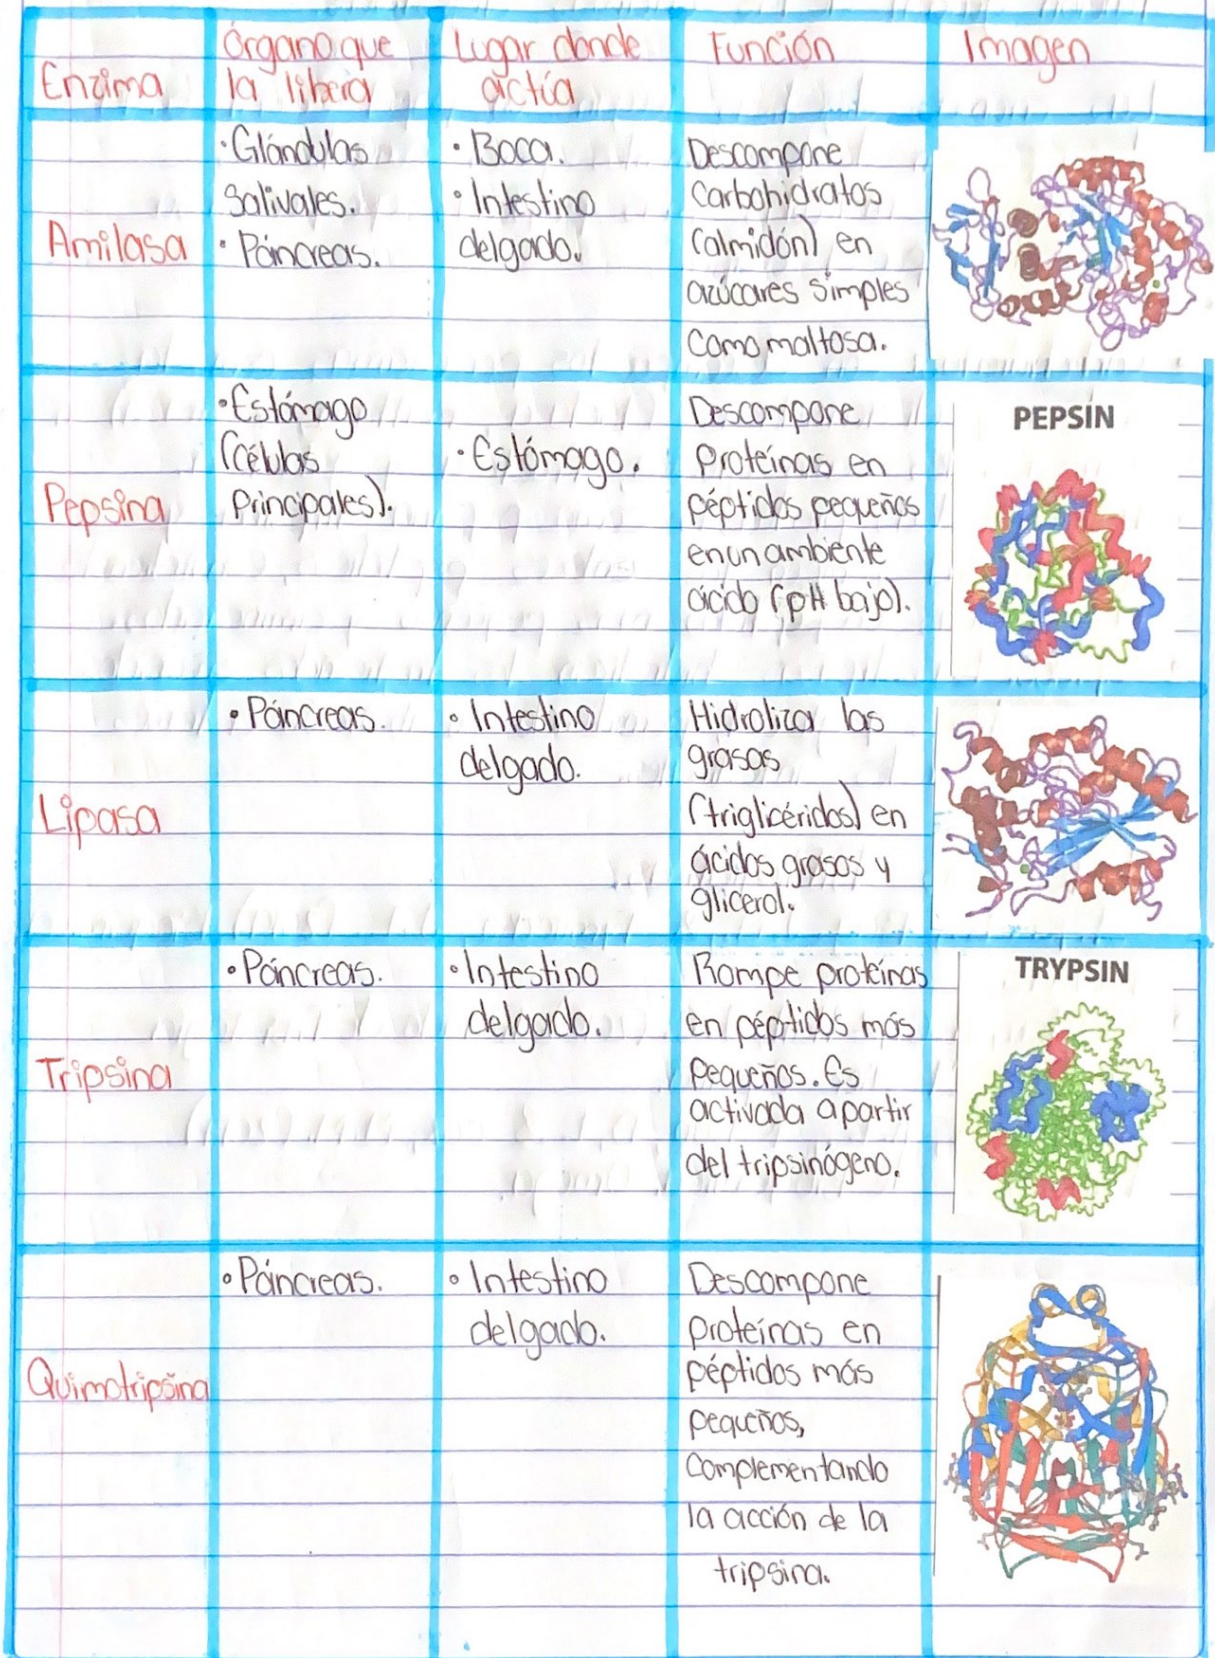 Enzima
Órgano que
la libera
Lugar donde
actúa
Función
Imagen
Amilasa
• Glándulas
Salivales.
• Páncreas.
• Boca.
• Intestino
delgado.
Descompone
Carbohidratos
(almidón) en
azúcares simples
como maltosa.
Pepsina
• Estómago
(Células
Principales).
• Estómago.
Descompone
Proteínas en
péptidos pequeños
en un ambiente
ácido (pH bajo).
PEPSIN
Lipasa
• Páncreas.
• Intestino
delgado.
Hidroliza las
grasas
(triglicéridos) en
ácidos grasos y
glicerol.
Tripsina
• Páncreas.
• Intestino
delgado.
Rompe proteínas
en péptidos más
pequeños. Es
activada a partir
del tripsinógeno.
TRYPSIN
Quimotripsina
• Páncreas.
• Intestino
delgado.
Descompone
proteínas en
péptidos más
pequeños,
complementando
la acción de la
tripsina.